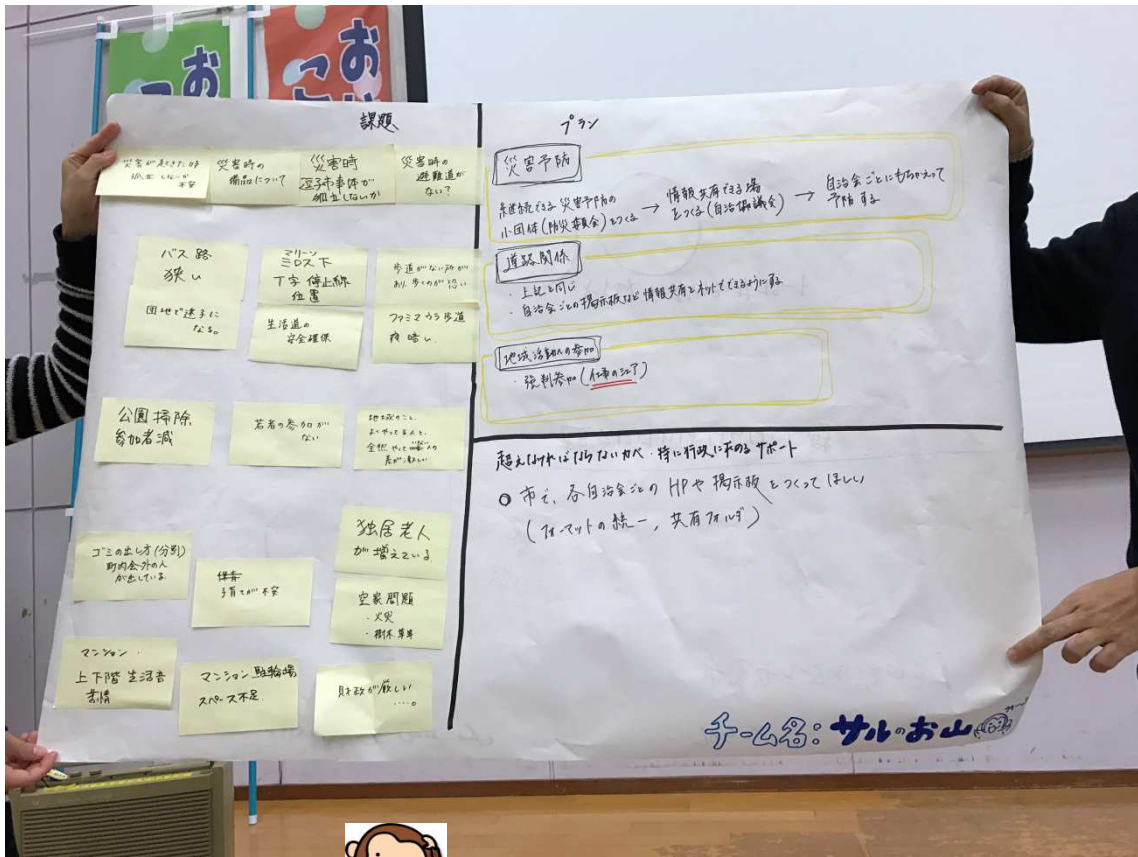 課題
災害が起きた時
孤立しないか
不安
災害時の
備品について
災害時
逗子市事体が
孤立しないか
災害時の
避難道が
ない?
バス路
狭い
マリーン
ミロス下
T字停止線
位置
歩道がない所が
あり、歩くのが恐い
団地で迷子に
なる。
生活道の
安全確保
ファミマウラ歩道
夜暗い
公園掃除
参加者減
若者の参加が
ない
地域のこと、
よくやってる人と、
全然やってない人の
差が激しい
ゴミの出し方(分別)
町内会外の人
が出している
保育
子育てが不安
独居老人
が増えている
空家問題
・火災
・樹木草等
マンション
上下階生活音
苦情
マンション駐輪場
スペース不足
財政が厳しい
……。
プラン
災害予防
継続できる災害予防の
小団体(防災委員会)をつくる
→ 情報共有できる場
をつくる(自治協議会)
→ 自治会ごとにもちかえって
予防する
道路関係
・上記と同じ
・自治会ごとの掲示板など情報共有をネットでできるようにする
地域活動への参加
・強制参加(仕事のシェア)
超えなければならないカベ・特に行政に求めるサポート
○ 市で、各自治会ごとのHPや掲示板をつくってほしい
(フォーマットの統一, 共有フォルダ)
チーム名:サルのお山